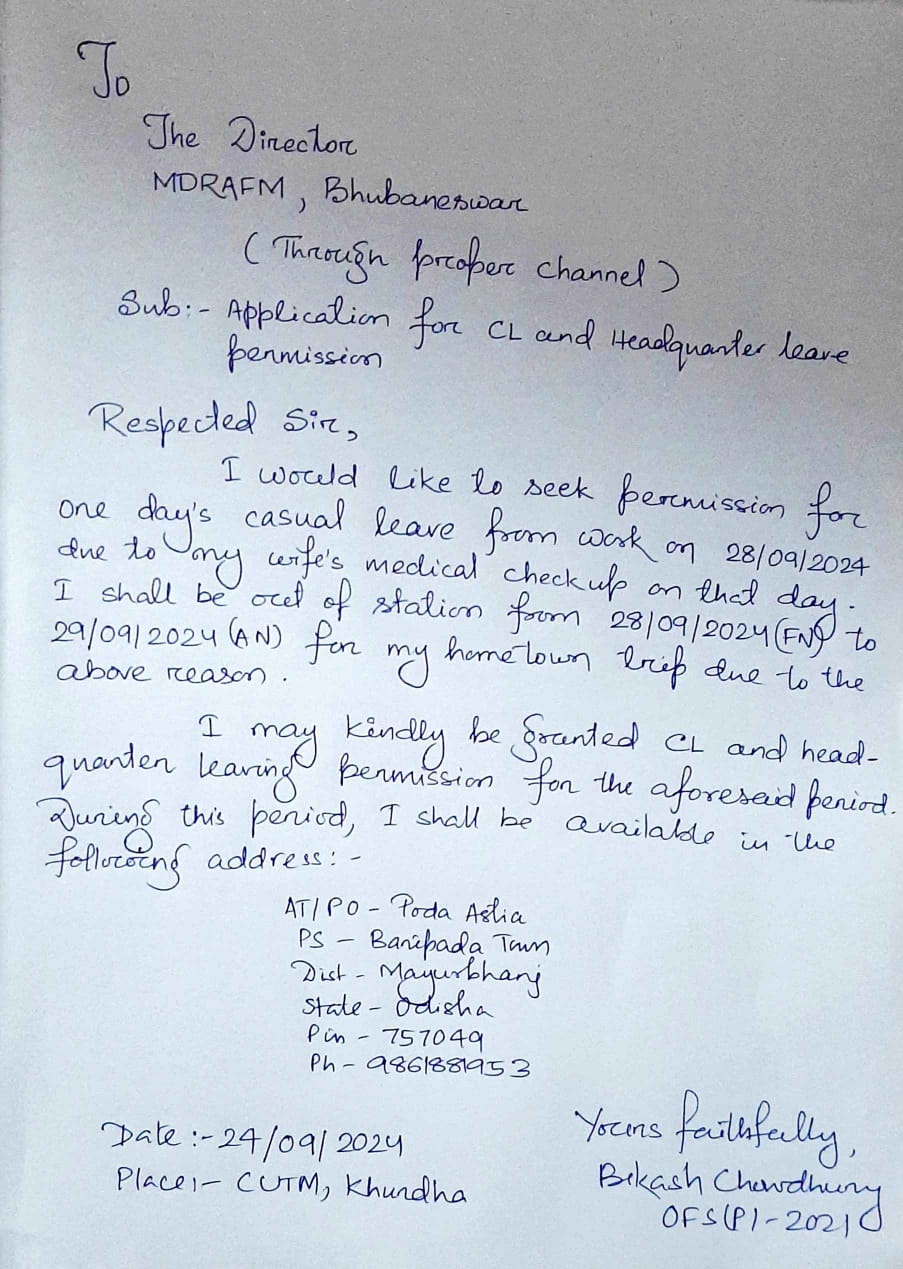 To
The Director
MDRAFM, Bhubaneswar
(Through proper channel)
Sub:- Application for CL and Headquarter leave
permission
Respected Sir,
I would like to seek permission for
one day's casual leave from work on 28/09/2024
due to my wife's medical checkup on that day.
I shall be out of station from 28/09/2024 (FN) to
29/09/2024 (AN) for my hometown trip due to the
above reason.
I may kindly be granted CL and head-
quarter leaving permission for the aforesaid period.
During this period, I shall be available in the
following address:-
AT/PO - Poda Astia
PS - Baripada Town
Dist - Mayurbhanj
State - Odisha
Pin - 757049
Ph - 9861881953
Date :- 24/09/2024
Place :- CUTM, Khurdha
Yours faithfully,
Bikash Chowdhury
OFS(P)-2021